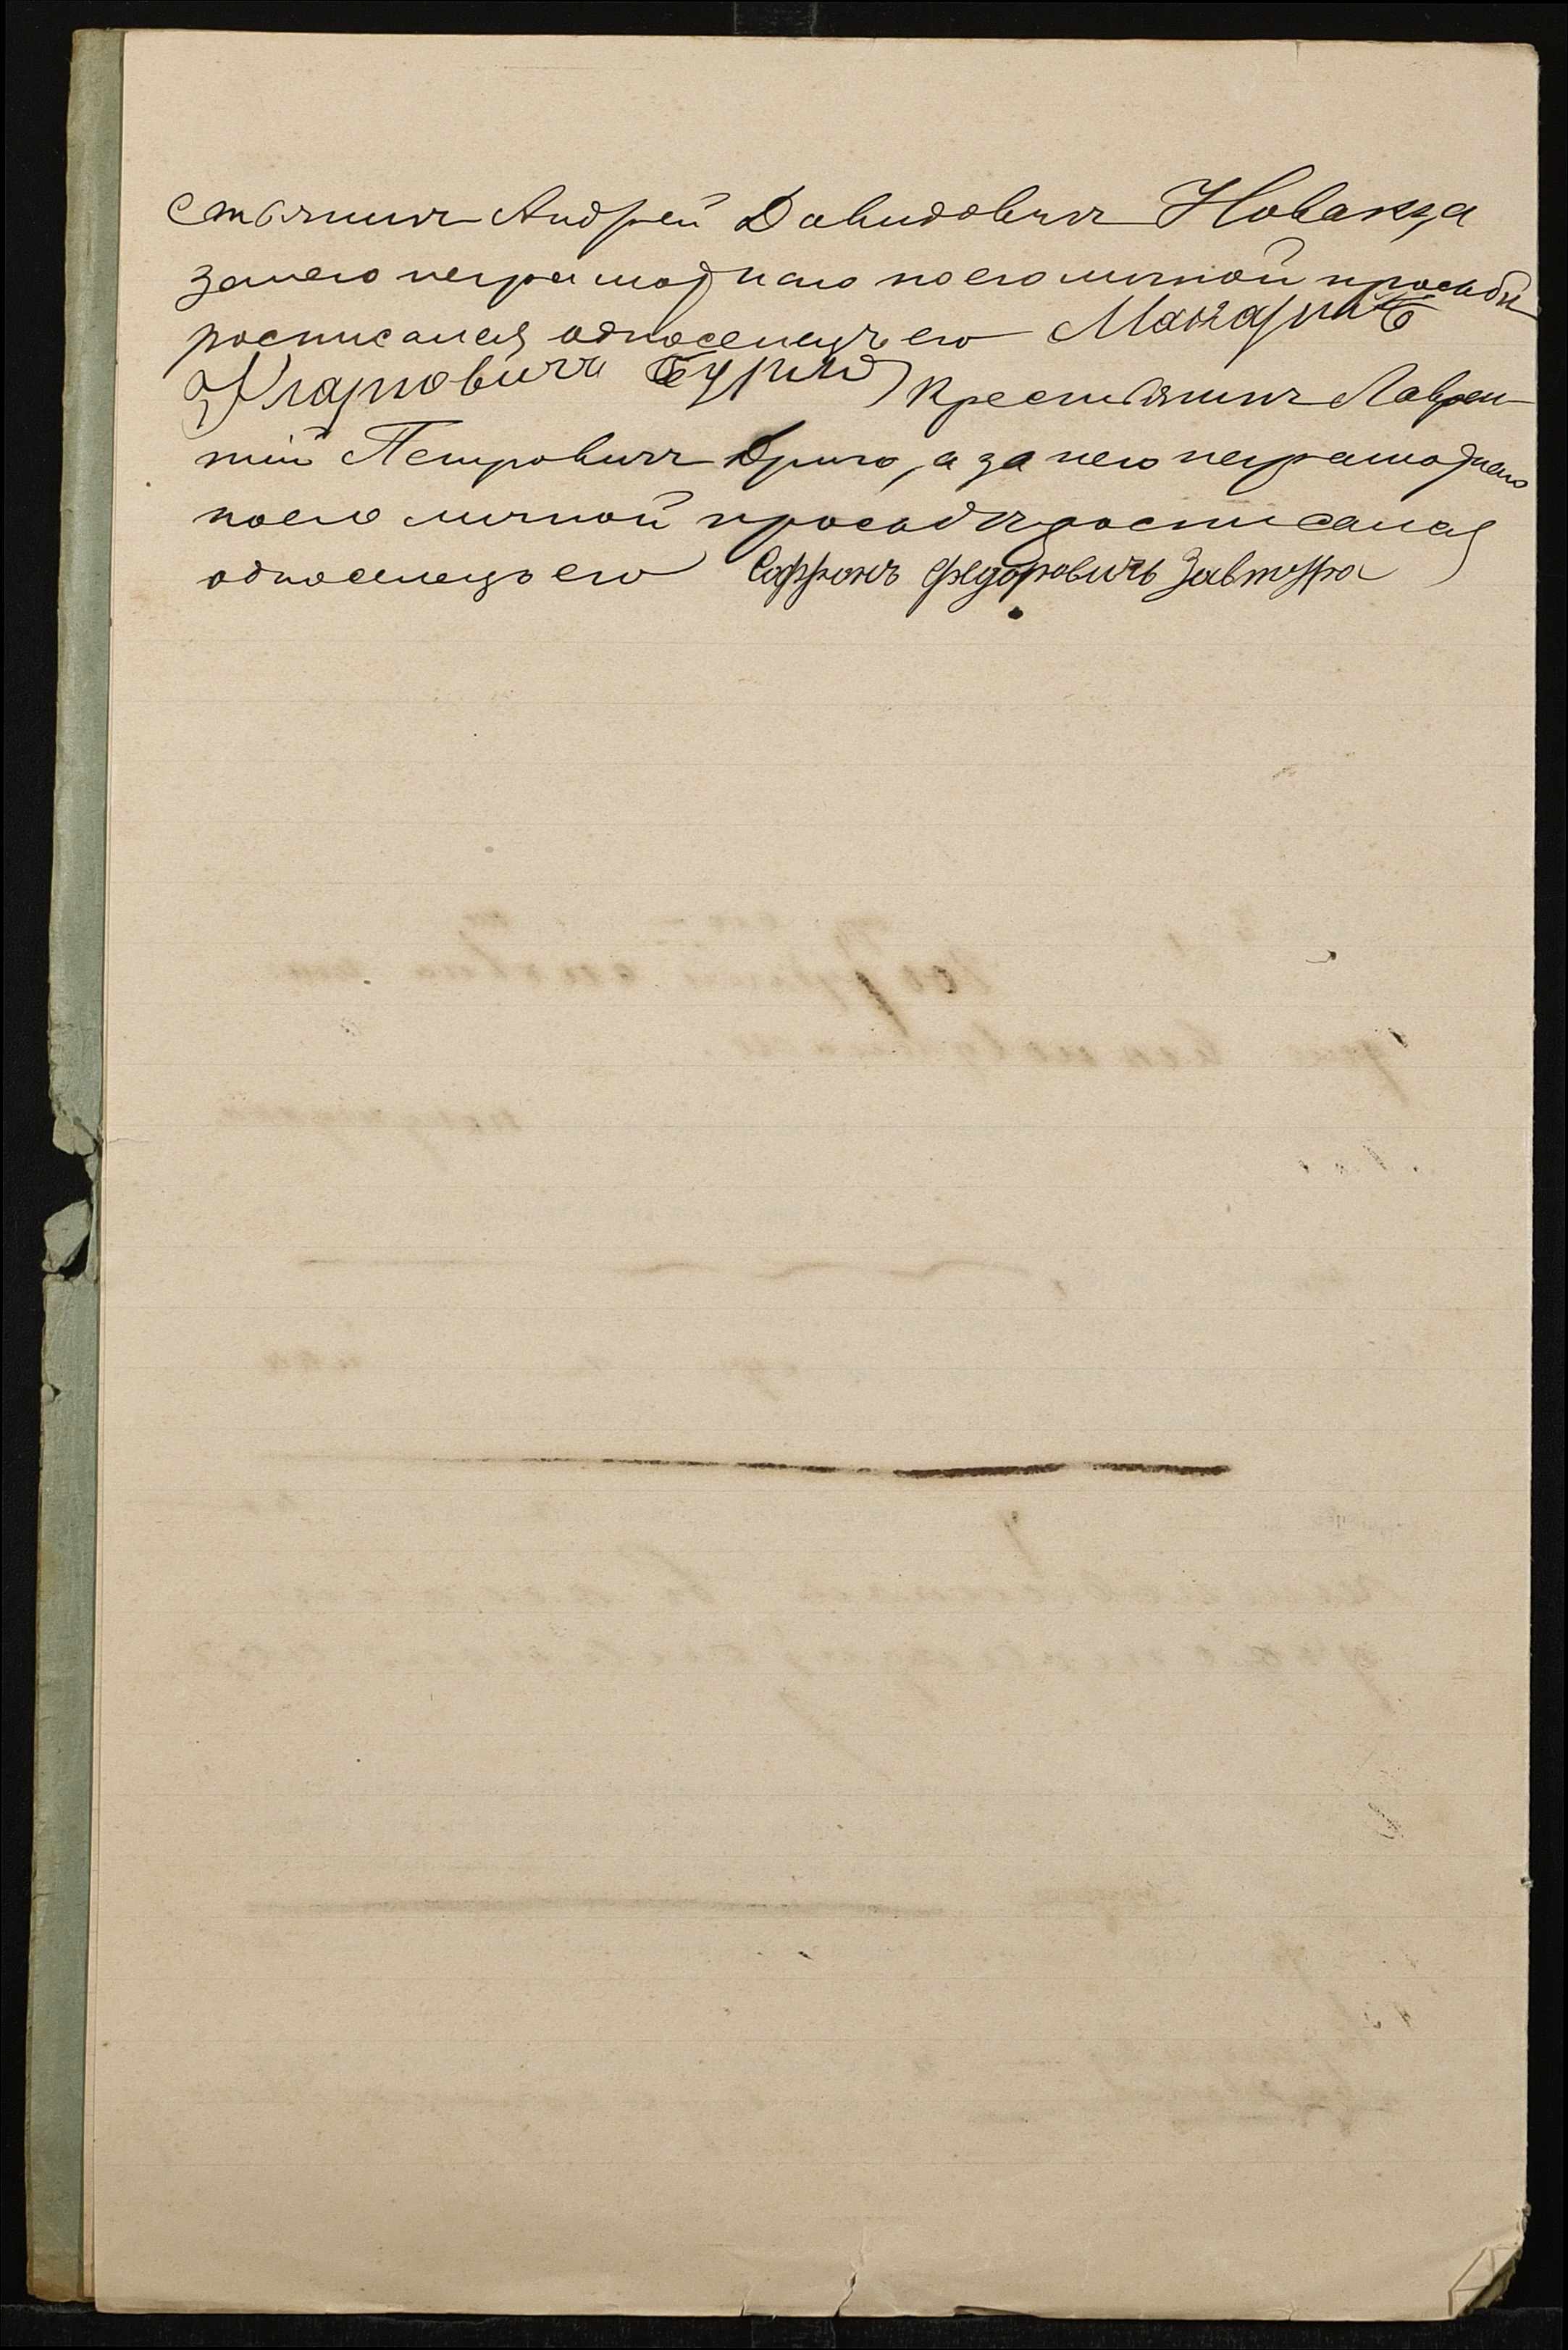 стьянинъ Андрей Давидовичъ Новакза
занего неграмотнаго по его личной просьбѣ
росписался односелецъ его Макарій
Карповичъ Бурко крестьянинъ Лаврен-
тій Петровичъ Дриго, а за него неграмотнаго
по его личной просьбѣ росписался
односелецъ его Софронъ Федоровичъ Завтура